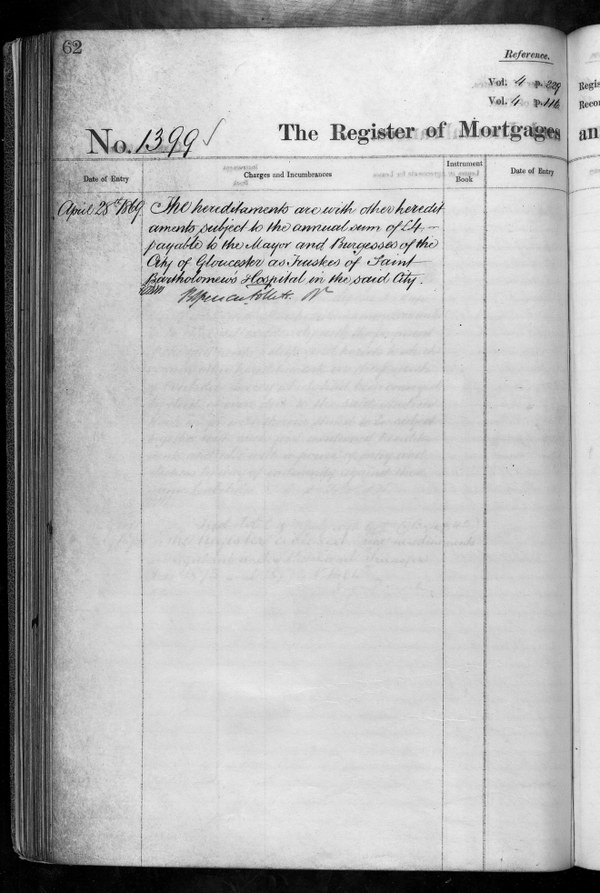 62
Reference.
Vol. 4 p. 229
Vol. 4 p. 116
No. 1399
The Register of Mortgages
Date of Entry
Charges and Incumbrances
Instrument
Book
Date of Entry
April 28th 1869
The hereditaments are with other heredit
aments subject to the annual sum of £4.—
payable to the Mayor and Burgesses of the
City of Gloucester as Trustees of Saint
Bartholomew's Hospital in the said City.
Regis
Recor
an